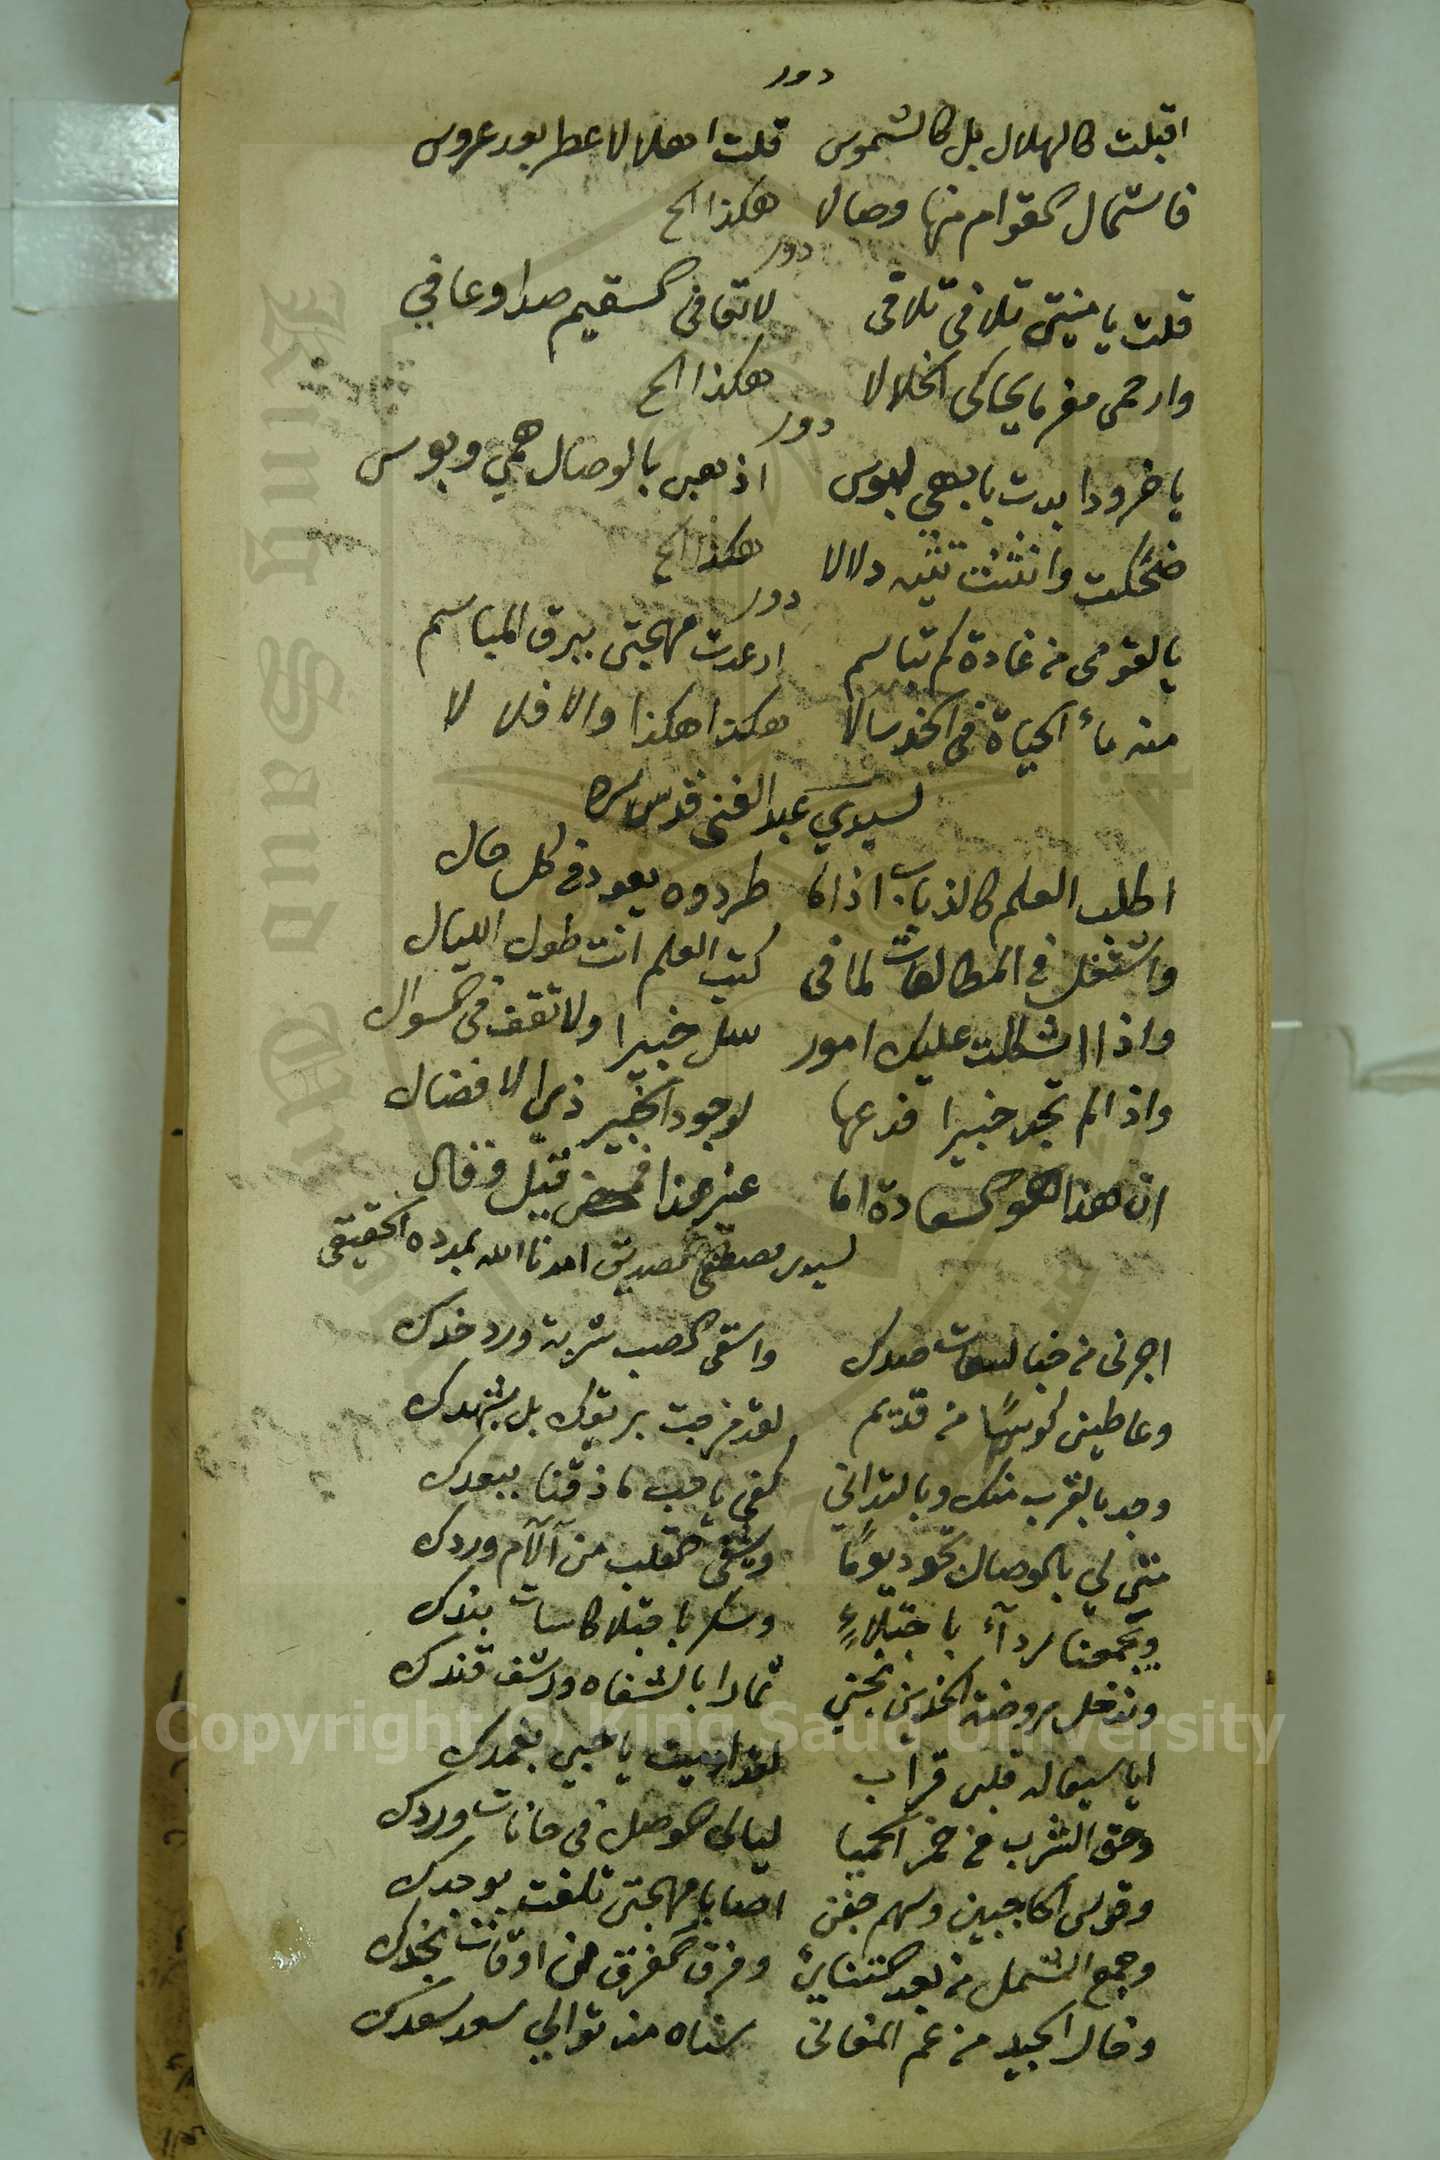 دور
اقبلت كالهلال بل كالشموس قلت اهلا لا عطر بعد عروس
فاستمال القوام منها وصالا هكذا الخ
دور
قلت يا منيتي تلافي تلافي لا تعافي السقيم صدا وعافي
وارحمي مغرما يحاكي الخلالا هكذا الخ
دور
يا خرودا بدت بابهى لبوس اذهبي بالوصال همي وبوسي
ضحكت وانثنت تثنيه دلالا هكذا الخ
دور
يا لقومي من غادة كم تباسم ارعدت مهجتي ببرق المباسم
منه ماء الحياة في الخد سالا هكذا هكذا والا فلا لا
لسيدي عبد الغني قدس سره
اطلب العلم كالذباب اذا ما طردوه يعود في كل حال
واشتغل في المطالعات لما في كتب العلم انت طول الليال
واذا اشكلت عليك امور سل خبيرا ولا تقف في السوال
واذا لم تجد خبيرا فدعها لوجود الخبير ذي الافضال
ان هذا هو السعادة اما غير هذا فمحض قيل وقال
لسيدي مصطفى الصديقي امدنا الله بمدده الحقيقي
اجرني من لسعات صدك واسقي الصب شربة ورد خدك
وعاطيني كوسًا من قديم لقد مزجت بريقك بل بشهدك
وجد بالقرب منك وبالتداني كفى يا حب ما ذقنا ببعدك
متى لي بالوصال تجود يومًا ويشفى القلب من آلام وردك
ويجمعنا ردآء باجتلاءٍ وسكر كاسات بندك
وندخل روضة الخدين نجني ثمارا بالشفاه ورشف قندك
ايا سيفا له قلبي قراب لقد يا حبي بغمدك
وحق الشرب من خمر الحميا ليالي الوصل في حانات وردك
وقوس الحاجبين وسهم جفن اصابا مهجتي تلفت بوجدك
وجمع الشمل من بعد التنائي وفرق المفرق من اوقات
وخال الجيد من عم المغاني سناه مذ توالي سعد سعدك
Copyright © King Saud University
King Saud University